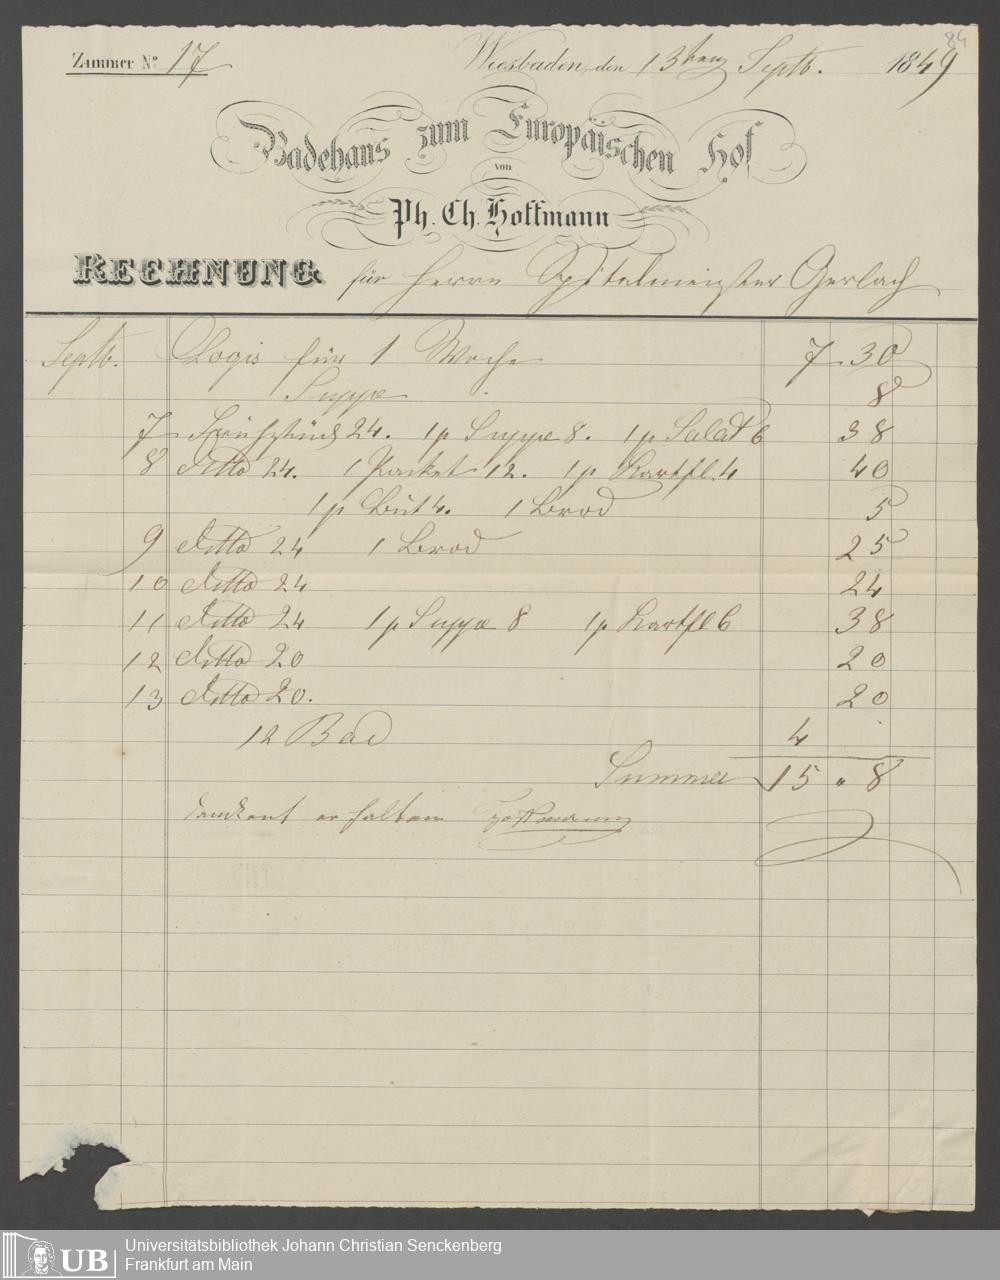 84
Zimmer No. 17 Wiesbaden, den 13ten Septb. 1849
Badehaus zum Europäischen Hof
von
Ph. Ch. Hoffmann
RECHNUNG für Herrn Spitalmeister Gerlach
Septb. Logis für 1 Woche 7 30
Suppe 8
7 Frühstück 24. 1 p Suppe 8. 1 p Salat 6 38
8 ditto 24. 1 Packet 12. 1 p Kartfl. 4 40
1 p But 4. 1 Brod 5
9 ditto 24 1 Brod 25
10 ditto 24 24
11 ditto 24 1 p Suppe 8 1 p Kartfl 6 38
12 ditto 20 20
13 ditto 20. 20
12 Bad 4
Summa 15 " 8
dankent erhalten Hoffmann
UB Universitätsbibliothek Johann Christian Senckenberg
Frankfurt am Main